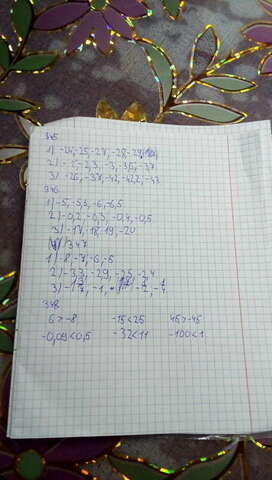 345
1) -24, -25, -27, -28, -29
2) -2, -2,3, -3, -3,5, -3,7
3) -26, -37, -42, -42,2, -43
346
1) -5, -5,5, -6, -6,5
2) -0,2, -0,3, -0,4, -0,5
3) -17, 18, 19, -20
347
1) -8, -7, -6, -5
2) -3,3, -2,9, -2,5, -2,4
3)
348
6 > -8 -15 < 25 45 > -45
-0,09 < 0,5 -32 < 11 -100 < 1